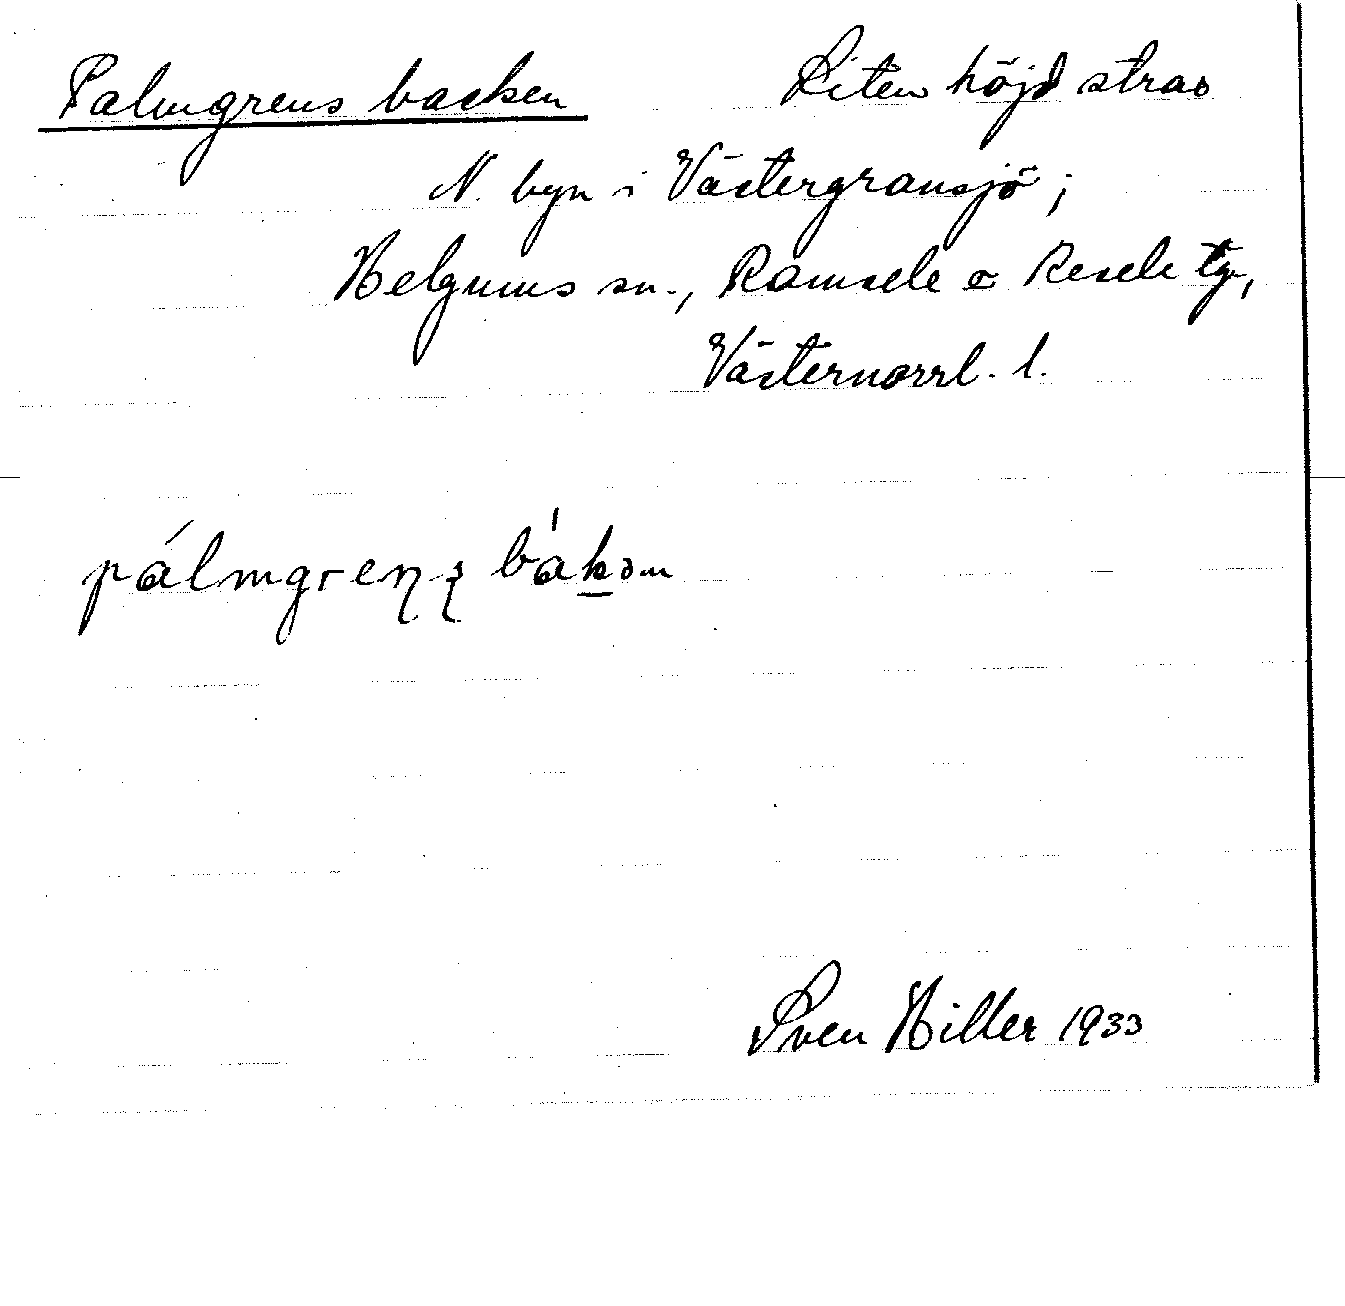 Palmgrens backen Liten höjd strax
N. byn i Västergransjö;
Helgums sn., Ramsele o Resele tg.,
Västernorrl. l.
pálmgreɳʂ bákən
Sven Hiller 1933